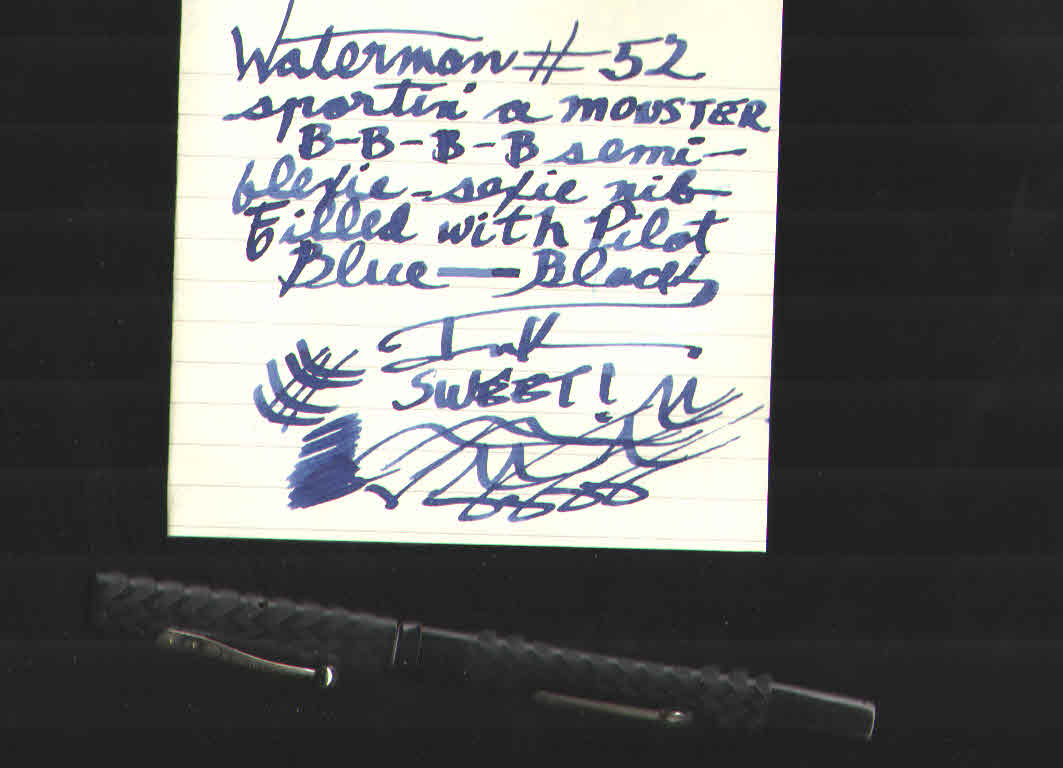 Waterman # 52
sportin' a MONSTER
B-B-B-B semi-
flexie-sexie nib
Filled with Pilot
Blue—Black
Ink
SWEET!